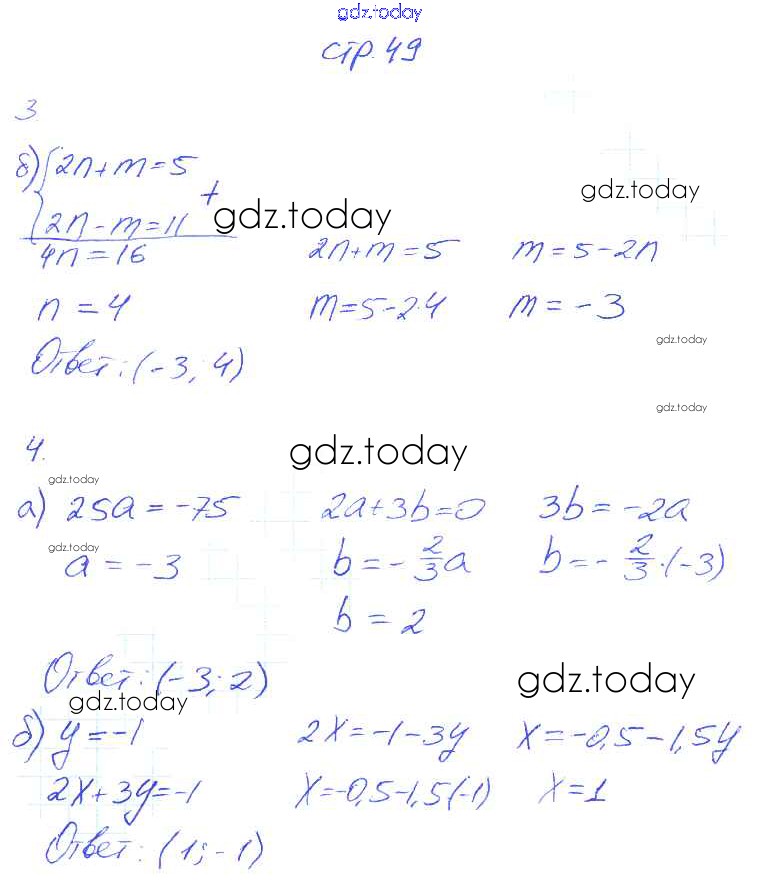 gdz.today
стр. 49
3
б) { 2n + m = 5
2n - m = 11 +
gdz.today
gdz.today
4n = 16 2n + m = 5 m = 5 - 2n
n = 4 m = 5 - 2·4 m = -3
gdz.today
Ответ: (-3; 4)
gdz.today
4.
gdz.today
gdz.today
а) 25a = -75 2a + 3b = 0 3b = -2a
gdz.today
a = -3 b = -2/3 a b = -2/3 · (-3)
b = 2
Ответ: (-3; 2)
gdz.today
gdz.today
б) y = -1 2x = -1 - 3y x = -0,5 - 1,5y
2x + 3y = -1 x = -0,5 - 1,5(-1) x = 1
Ответ: (1; -1)